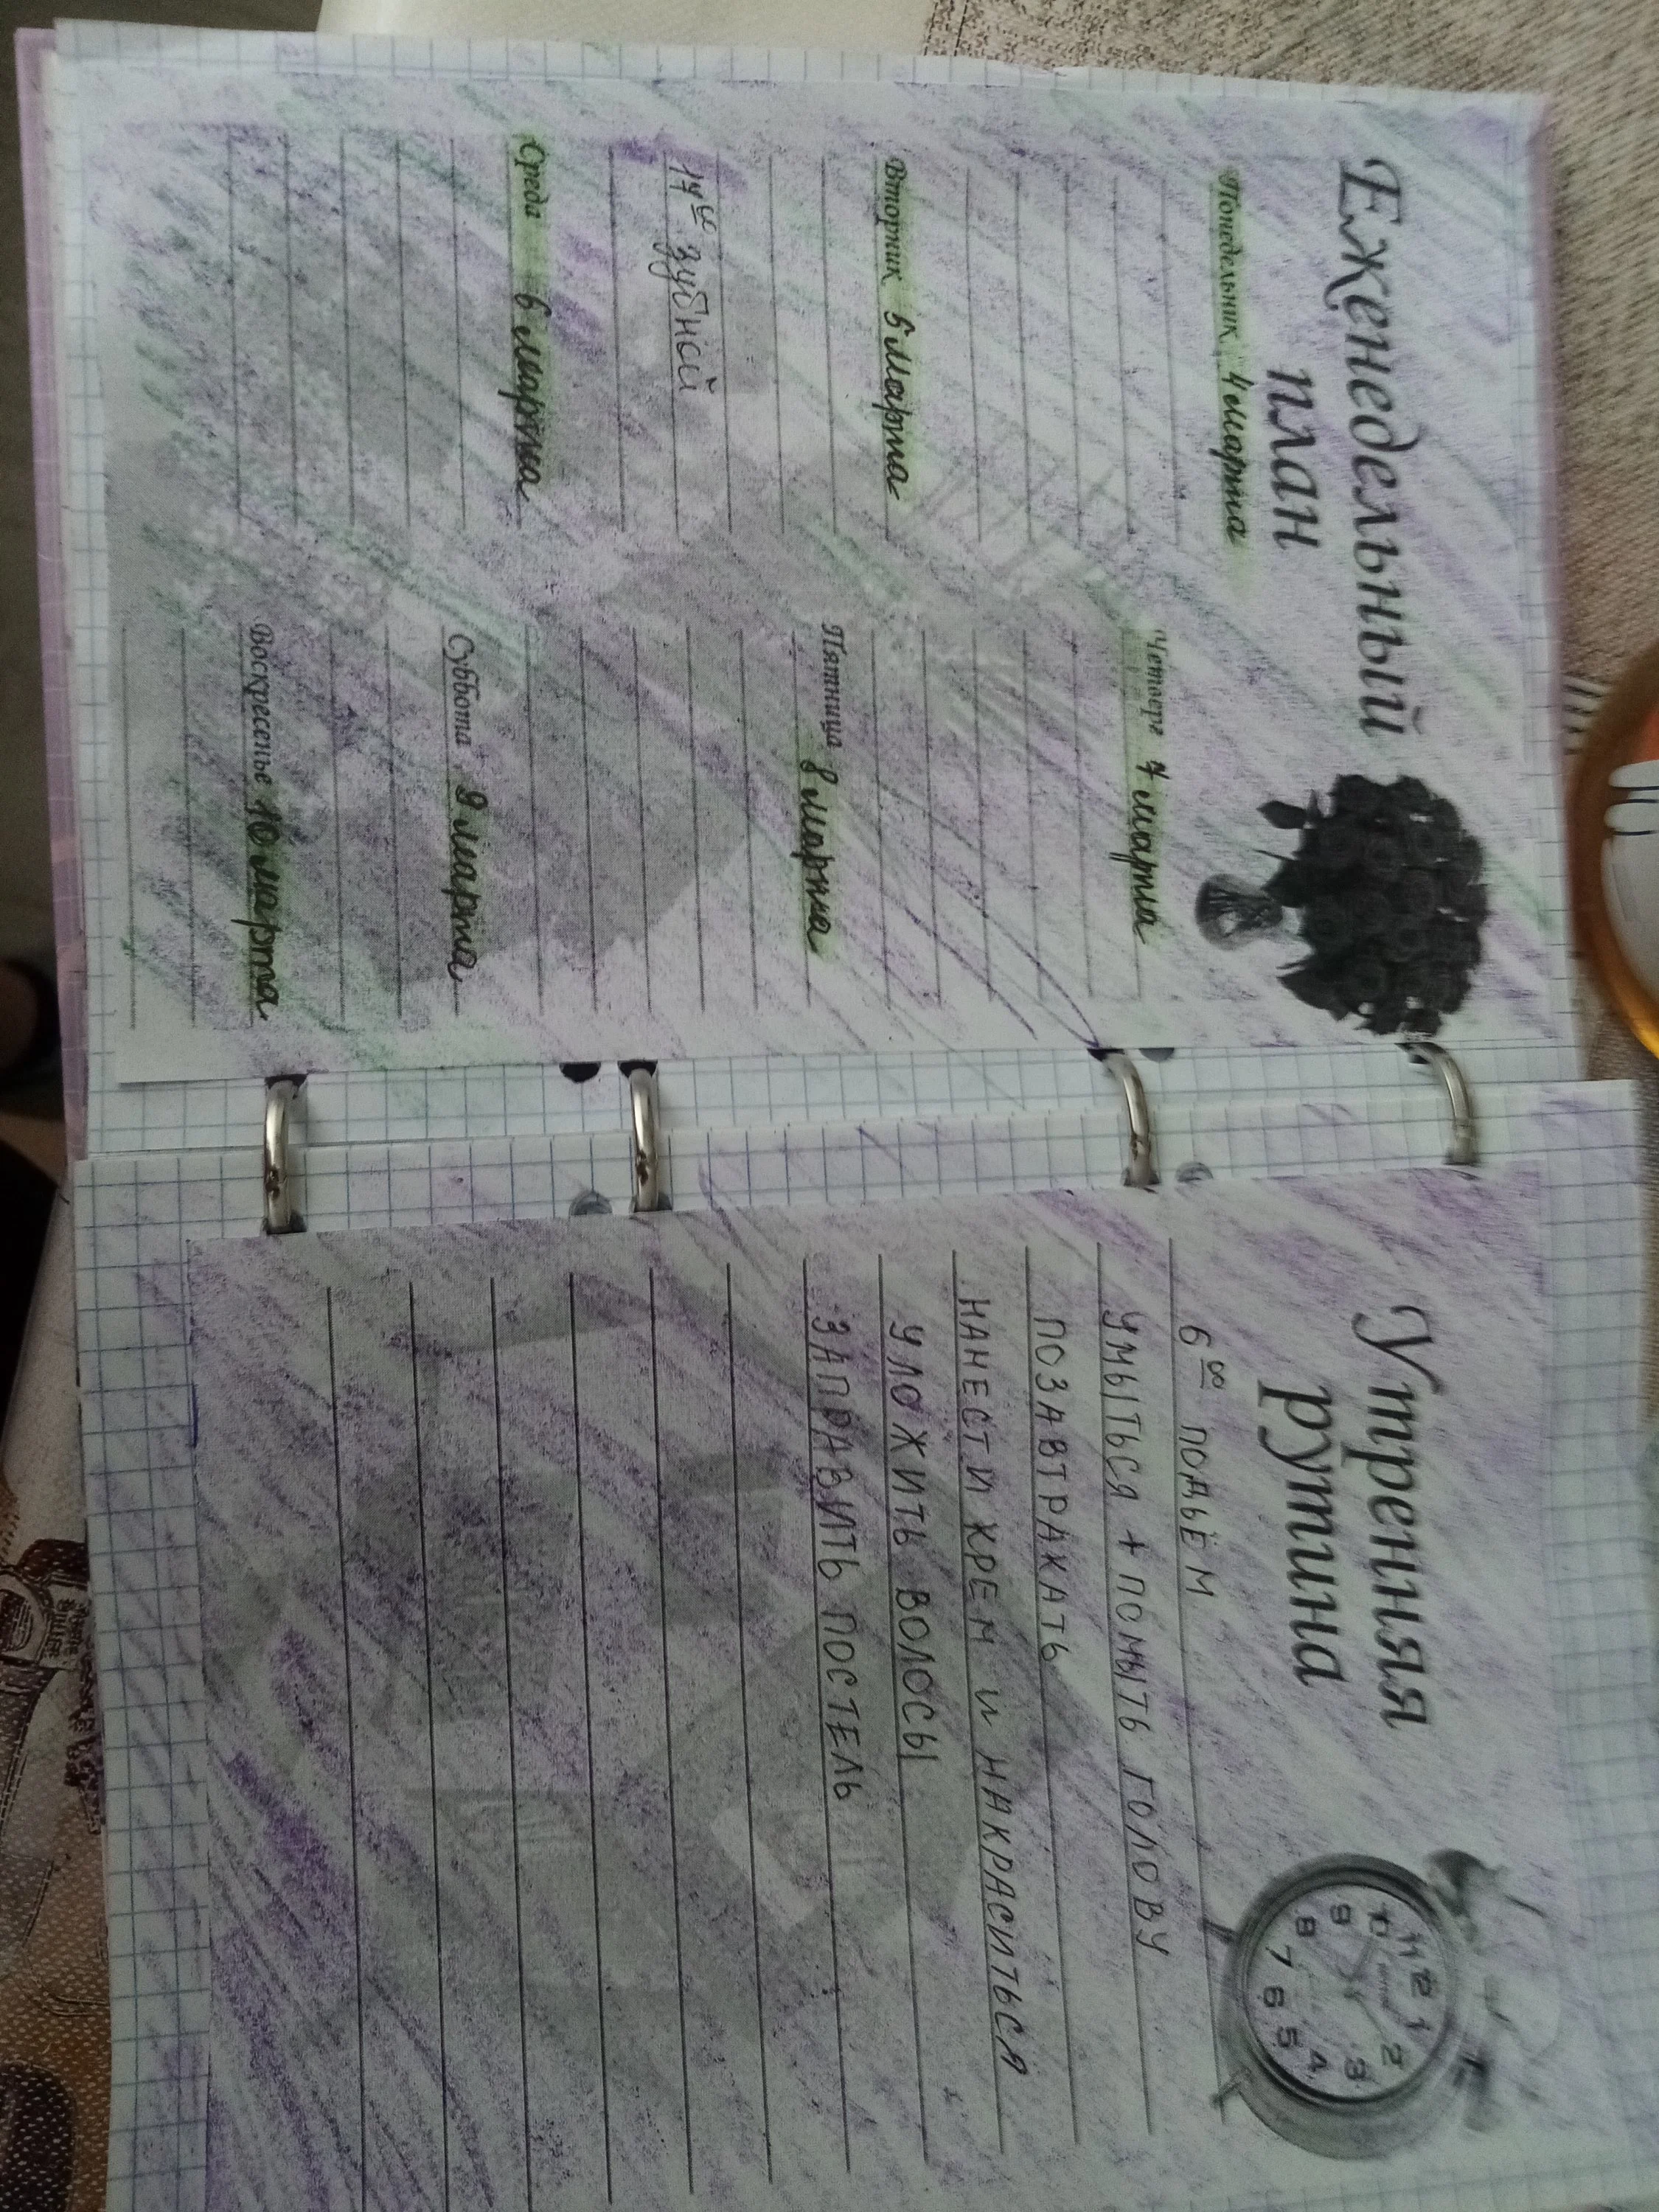 Еженедельный
план
Понедельник 4 марта
Вторник 5 марта
17⁰⁰ зубной
Среда 6 марта
Четверг 7 марта
Пятница 8 марта
Суббота 9 марта
Воскресенье 10 марта
Утренняя
рутина
6⁰⁰ ПОДЬЁМ
УМЫТЬСЯ + ПОМЫТЬ ГОЛОВУ
ПОЗАВТРАКАТЬ
НАНЕСТИ КРЕМ И НАКРАСИТЬСЯ
УЛОЖИТЬ ВОЛОСЫ
ЗАПРАВИТЬ ПОСТЕЛЬ
11 12 1
10 2
9 3
8 4
7 6 5